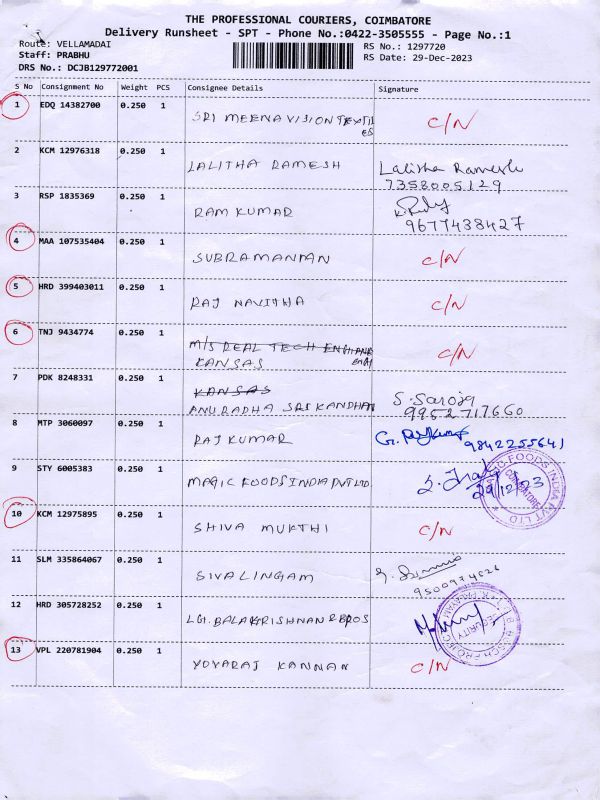 THE PROFESSIONAL COURIERS, COIMBATORE
Delivery Runsheet - SPT - Phone No.:0422-3505555 - Page No.:1
Route: VELLAMADAI RS No.: 1297720
Staff: PRABHU RS Date: 29-Dec-2023
DRS No.: DCJB129772001
S No Consignment No Weight PCS Consignee Details Signature
1 EDQ 14382700 0.250 1 SRI MEENA VISION TEXTILES C/N
2 KCM 12976318 0.250 1 LALITHA RAMESH Lalitha Ramesh
7358005129
3 RSP 1835369 0.250 1 RAM KUMAR
9677438427
4 MAA 107535404 0.250 1 SUBRAMANIAN C/N
5 HRD 399403011 0.250 1 RAJ NAVITHA C/N
6 TNJ 9434774 0.250 1 M/S REAL TECH
KANSAS C/N
7 PDK 8248331 0.250 1 KANSAS S. Saroja
ANURADHA SRI KANDHAN 9952717660
8 MTP 3060097 0.250 1 RAJ KUMAR 9842255641
9 STY 6005383 0.250 1 MAGIC FOODS INDIA PVT LTD 29/12/23
MAGIC FOODS INDIA PVT LTD
COIMBATORE
10 KCM 12975895 0.250 1 SHIVA MUKTHI C/N
11 SLM 335864067 0.250 1 SIVALINGAM
12 HRD 305728252 0.250 1 LGI. BALAKRISHNAN & BROS
SECURITY
13 VPL 220781904 0.250 1 YOVARAJ KANNAN C/N